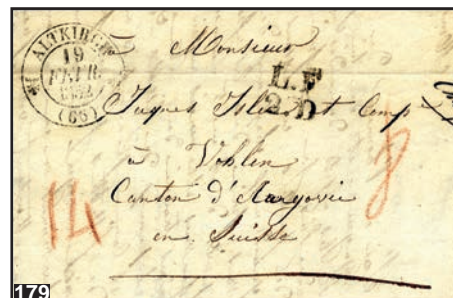 ALTKIRCH
19
FEVR.
1852
(66)
à Monsieur
L.F
2.D
Jaques Isler et Comp
à Vohlen
Canton d'Aargovie
en Suisse
14
8
179